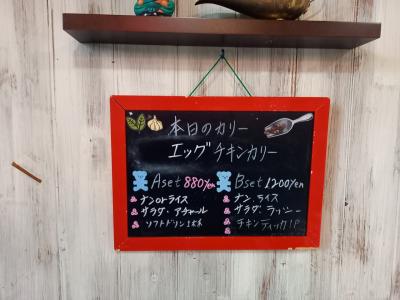 本日のカリー
エッグチキンカリー
Aset 880Yen
ナンorライス
サラダ・アチャール
ソフトドリンク
Bset 1200Yen
ナン、ライス
サラダ・ラッシー
チキンティック1P